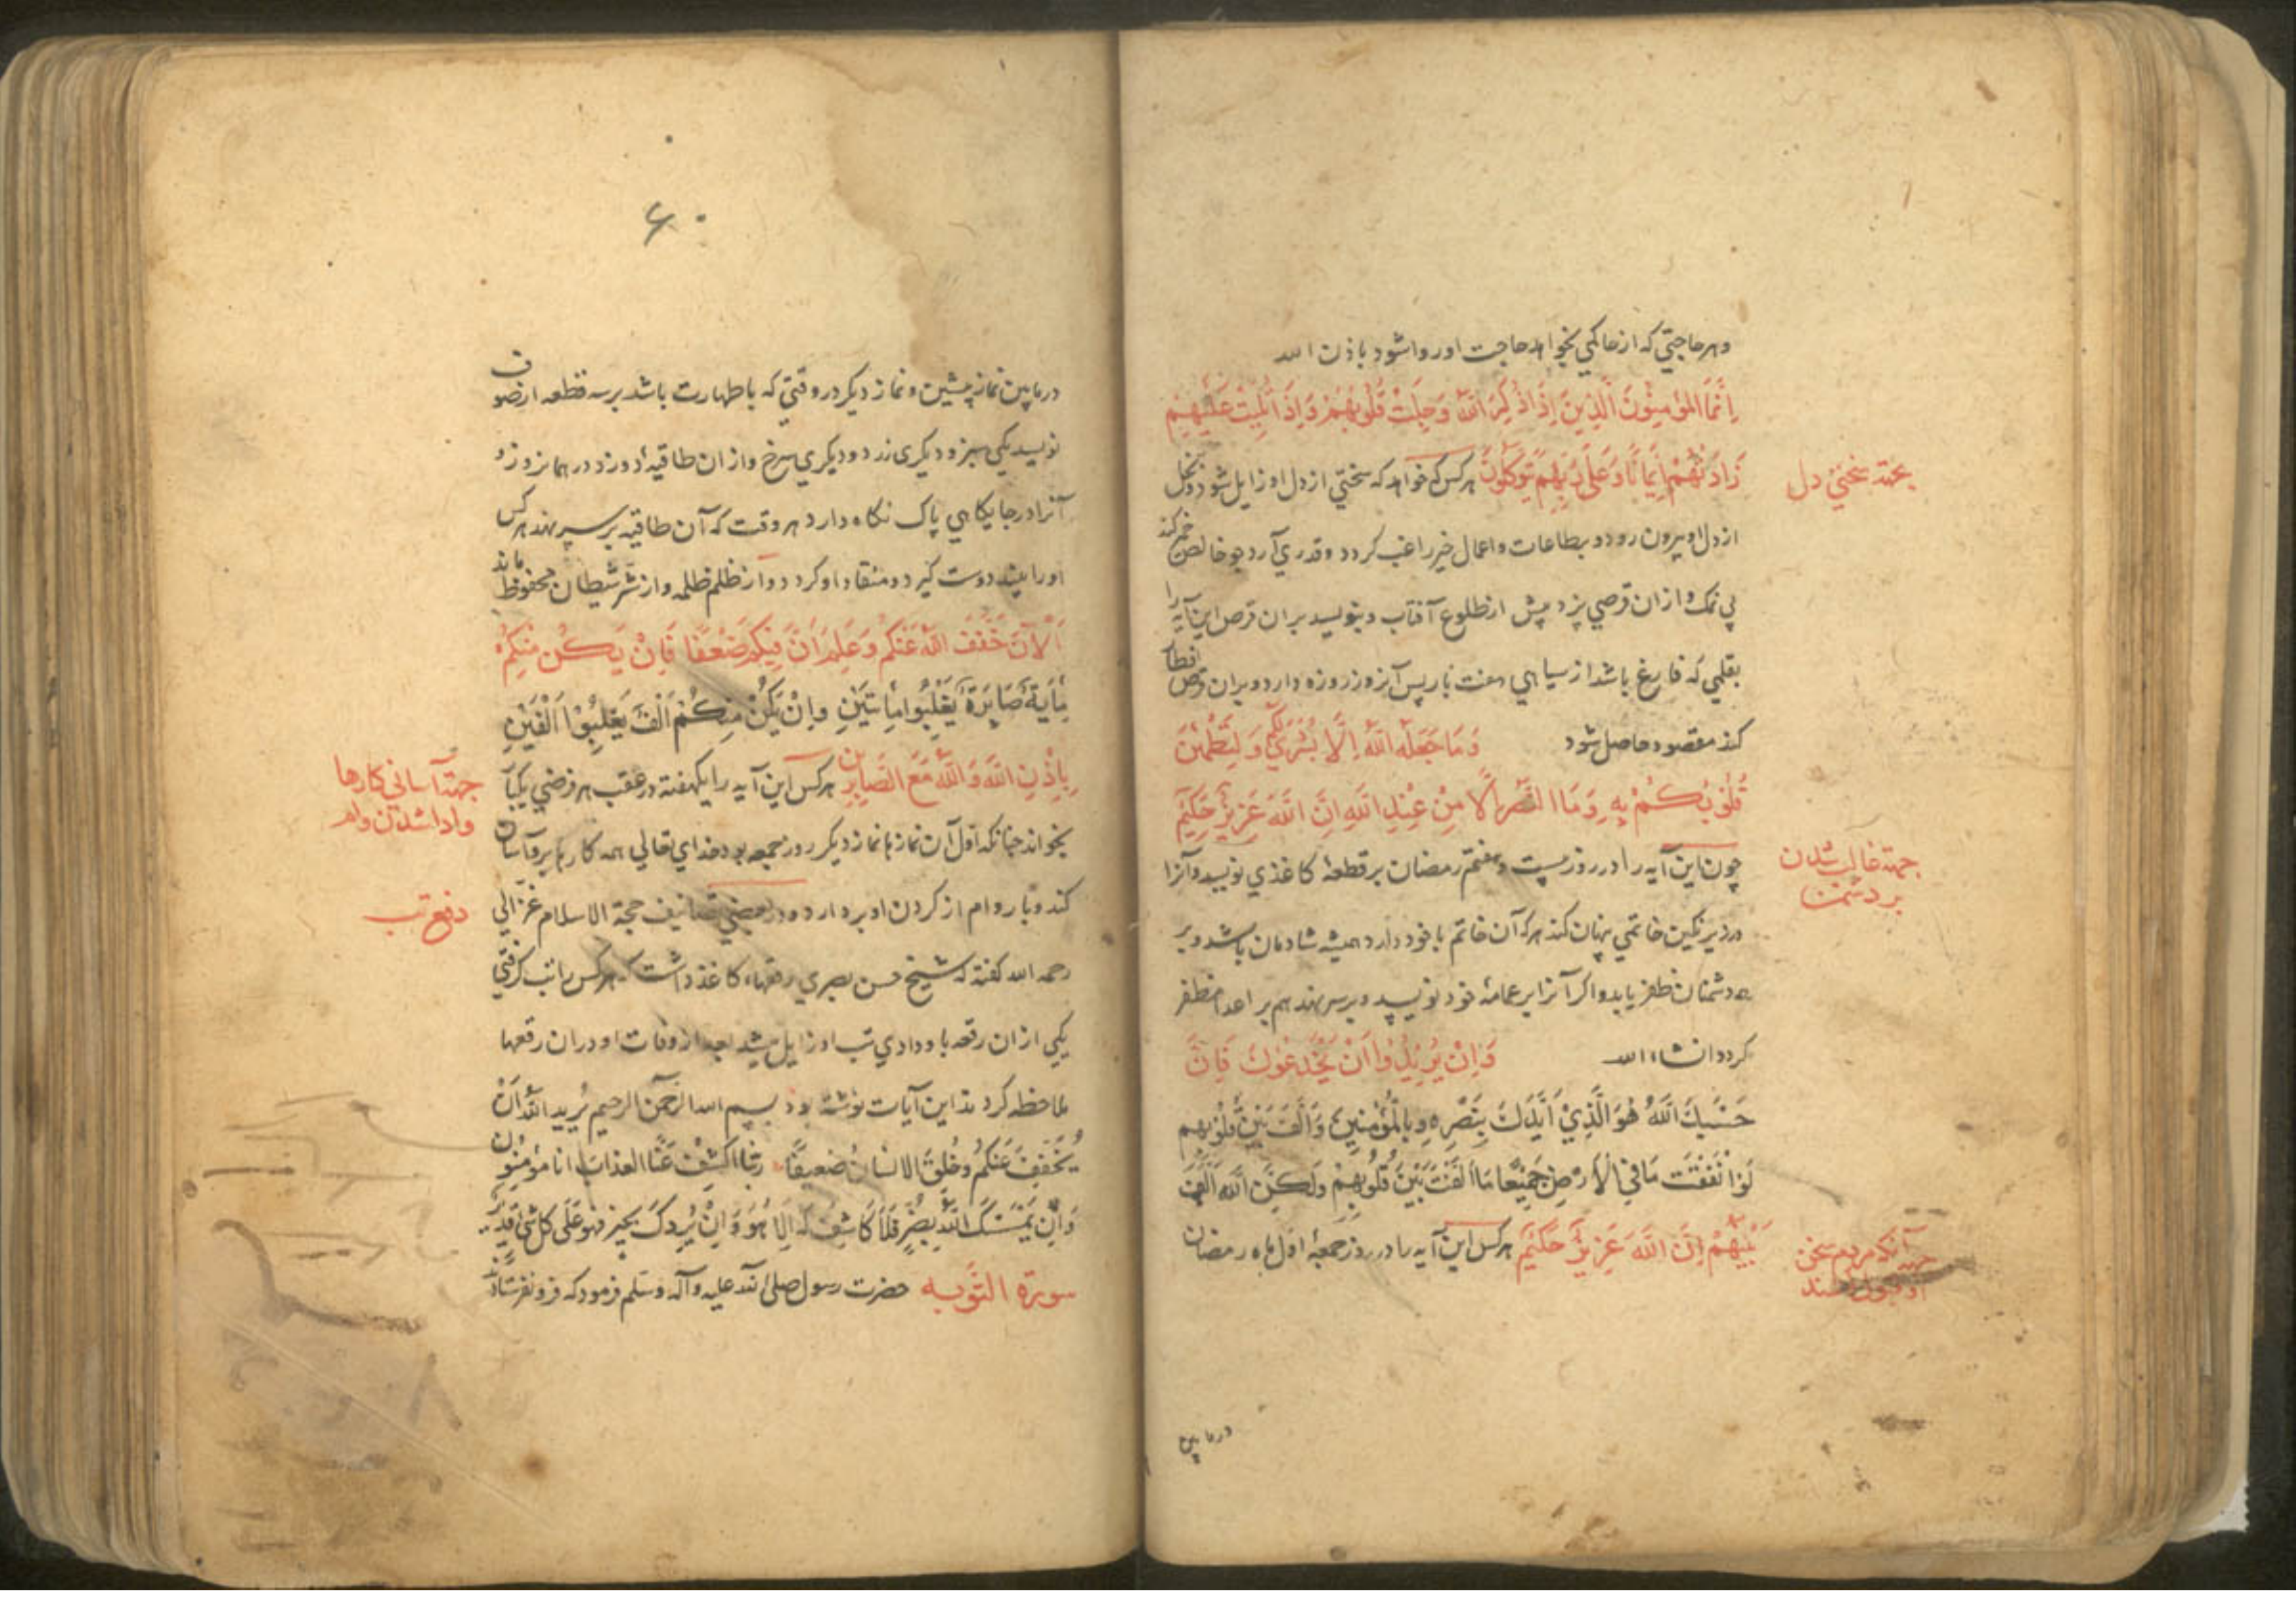 وهر حاجتي که از حاکمي بخواهد حاجت او روا شود باذن الله
اِنَّمَا المؤمِنُونَ الَّذِينَ اِذَا ذُكِرَ اللَّهُ وَجِلَتْ قُلُوبُهُمْ وَاِذَا تُلِيَتْ عَلَيْهِمْ
زَادَتْهُمْ اِيمَانًا وَعَلَى رَبِّهِمْ يَتَوَكَّلُونَ هر کس که خواهد که سختي از دل او زايل شود وبخل
بجهة سختي دل
از دل او بيرون رود وبطاعات واعمال خير راغب کردد وقدري آرد جو خالص خمير کند
بي نمک وازان قرصي پزد پيش از طلوع آفتاب وبنويسد بران قرص اين آيه را
بقلمي که فارغ باشد از سياهي هفت بار پس آنروز روزه دارد وبران قرص افطار
کند مقصود حاصل شود وَمَا جَعَلَهُ اللَّهُ اِلَّا بُشْرَى لَكُمْ وَلِتَطْمَئِنَّ
قُلُوبُكُمْ بِهِ وَمَا النَّصْرُ اِلَّا مِنْ عِنْدِ اللَّهِ اِنَّ اللَّهَ عَزِيزٌ حَكِيمٌ
چون اين آيه را در روز بيست وهفتم رمضان بر قطعهٔ کاغذي نويسد وآنرا
جهة غالب شدن
بر دشمن
در زير نکين خاتمي پنهان کند هر که آن خاتم با خود دارد هميشه شادمان باشد وبر
دشمنان ظفر يابد واکر آنرا بر عمامهٔ خود نويسد وبر سر نهد هم بر اعدا مظفر
کردد انشاء الله وَاِنْ يُرِيدُوا اَنْ يَخْدَعُوكَ فَاِنَّ
حَسْبَكَ اللَّهُ هُوَ الَّذِيْ اَيَّدَكَ بِنَصْرِهِ وبِالْمُؤْمِنِينَ وَاَلَّفَ بَيْنَ قُلُوبِهِم
لَوْ اَنْفَقْتَ مَا فِي الْاَرْضِ جَمِيْعًا مَا اَلَّفْتَ بَيْنَ قُلُوبِهِمْ وَلَكِنَّ اللَّهَ اَلَّفَ
بَيْنَهُمْ اِنَّ اللَّهَ عَزِيزٌ حَكِيمٌ هر کس اين آيه را در روز جمعهٔ اول ماه رمضان
آنکه مردم سخن
او قبول کنند
درمابين
۶۰
درمابين نماز پيشين ونماز ديکر در وقتي که با طهارت باشد بر سه قطعه از صوف
نويسد يکي سبز وديکری زرد وديکري سرخ وازان طاقيهٔ دوزد در همانروز و
آنرا در جايکاهي پاک نکاه دارد هر وقت که آن طاقيه بر سر نهد هر کس
او را بيند دوست کيرد ومنقاد او کردد واز ظلم ظلمه واز شر شيطان محفوظ ماند
اَلْآنَ خَفَّفَ اللَّهُ عَنْكُمْ وَعَلِمَ اَنَّ فِيكُمْ ضَعْفًا فَاِنْ يَكُنْ مِنْكُمْ
مِأَيَةٌ صَابِرَةٌ يَغْلِبُوا مِأتَيْنِ وَاِنْ يَكُنْ مِنكُمْ اَلْفٌ يَغْلِبُوْا اَلْفَيْنِ
بِاِذْنِ اللَّهِ وَاللَّهُ مَعَ الصَّابِرِين هر کس اين آيه را يکهفته در عقب هر فرضي يکبار
جهة آساني کارها
وادا شدن وام
بخواند چنانکه اول آن نماز نماز ديکر روز جمعه بود خداي تعالي همه کارها برو آسان
کند وبار وام از کردن او بردارد ودر بعضي تصانيف حجة الاسلام غزالي
دفع تب
رحمه الله کفته که شيخ حسن بصري رقعهاء کاغذ داشت که هر کس را تب کرفتي
يکي ازان رقعه باو دادي تب او زايل شدي بعد از وفات او دران رقعها
ملاحظه کردند اين آيات نوشته بود بسم الله الرحمن الرحيم يُريد اللَّهُ اَنْ
يُخَفِّفَ عَنْكُم وخُلِقَ الانسانُ ضعيفًا ربّنا اکشِفْ عَنّا العذابَ انا مؤمِنُون
وَاِنْ يَمْسَسْكَ اللَّهُ بِضُرٍّ فَلَا كَاشِفَ لَهُ اِلَّا هُوَ وَاِنْ يُرِدْكَ بخيرٍ فهو عَلَى کل شئ قَدِيرٌ
سورة التوبه حضرت رسول صلى الله عليه وآله وسلم فرمود که فرو نفرستادند